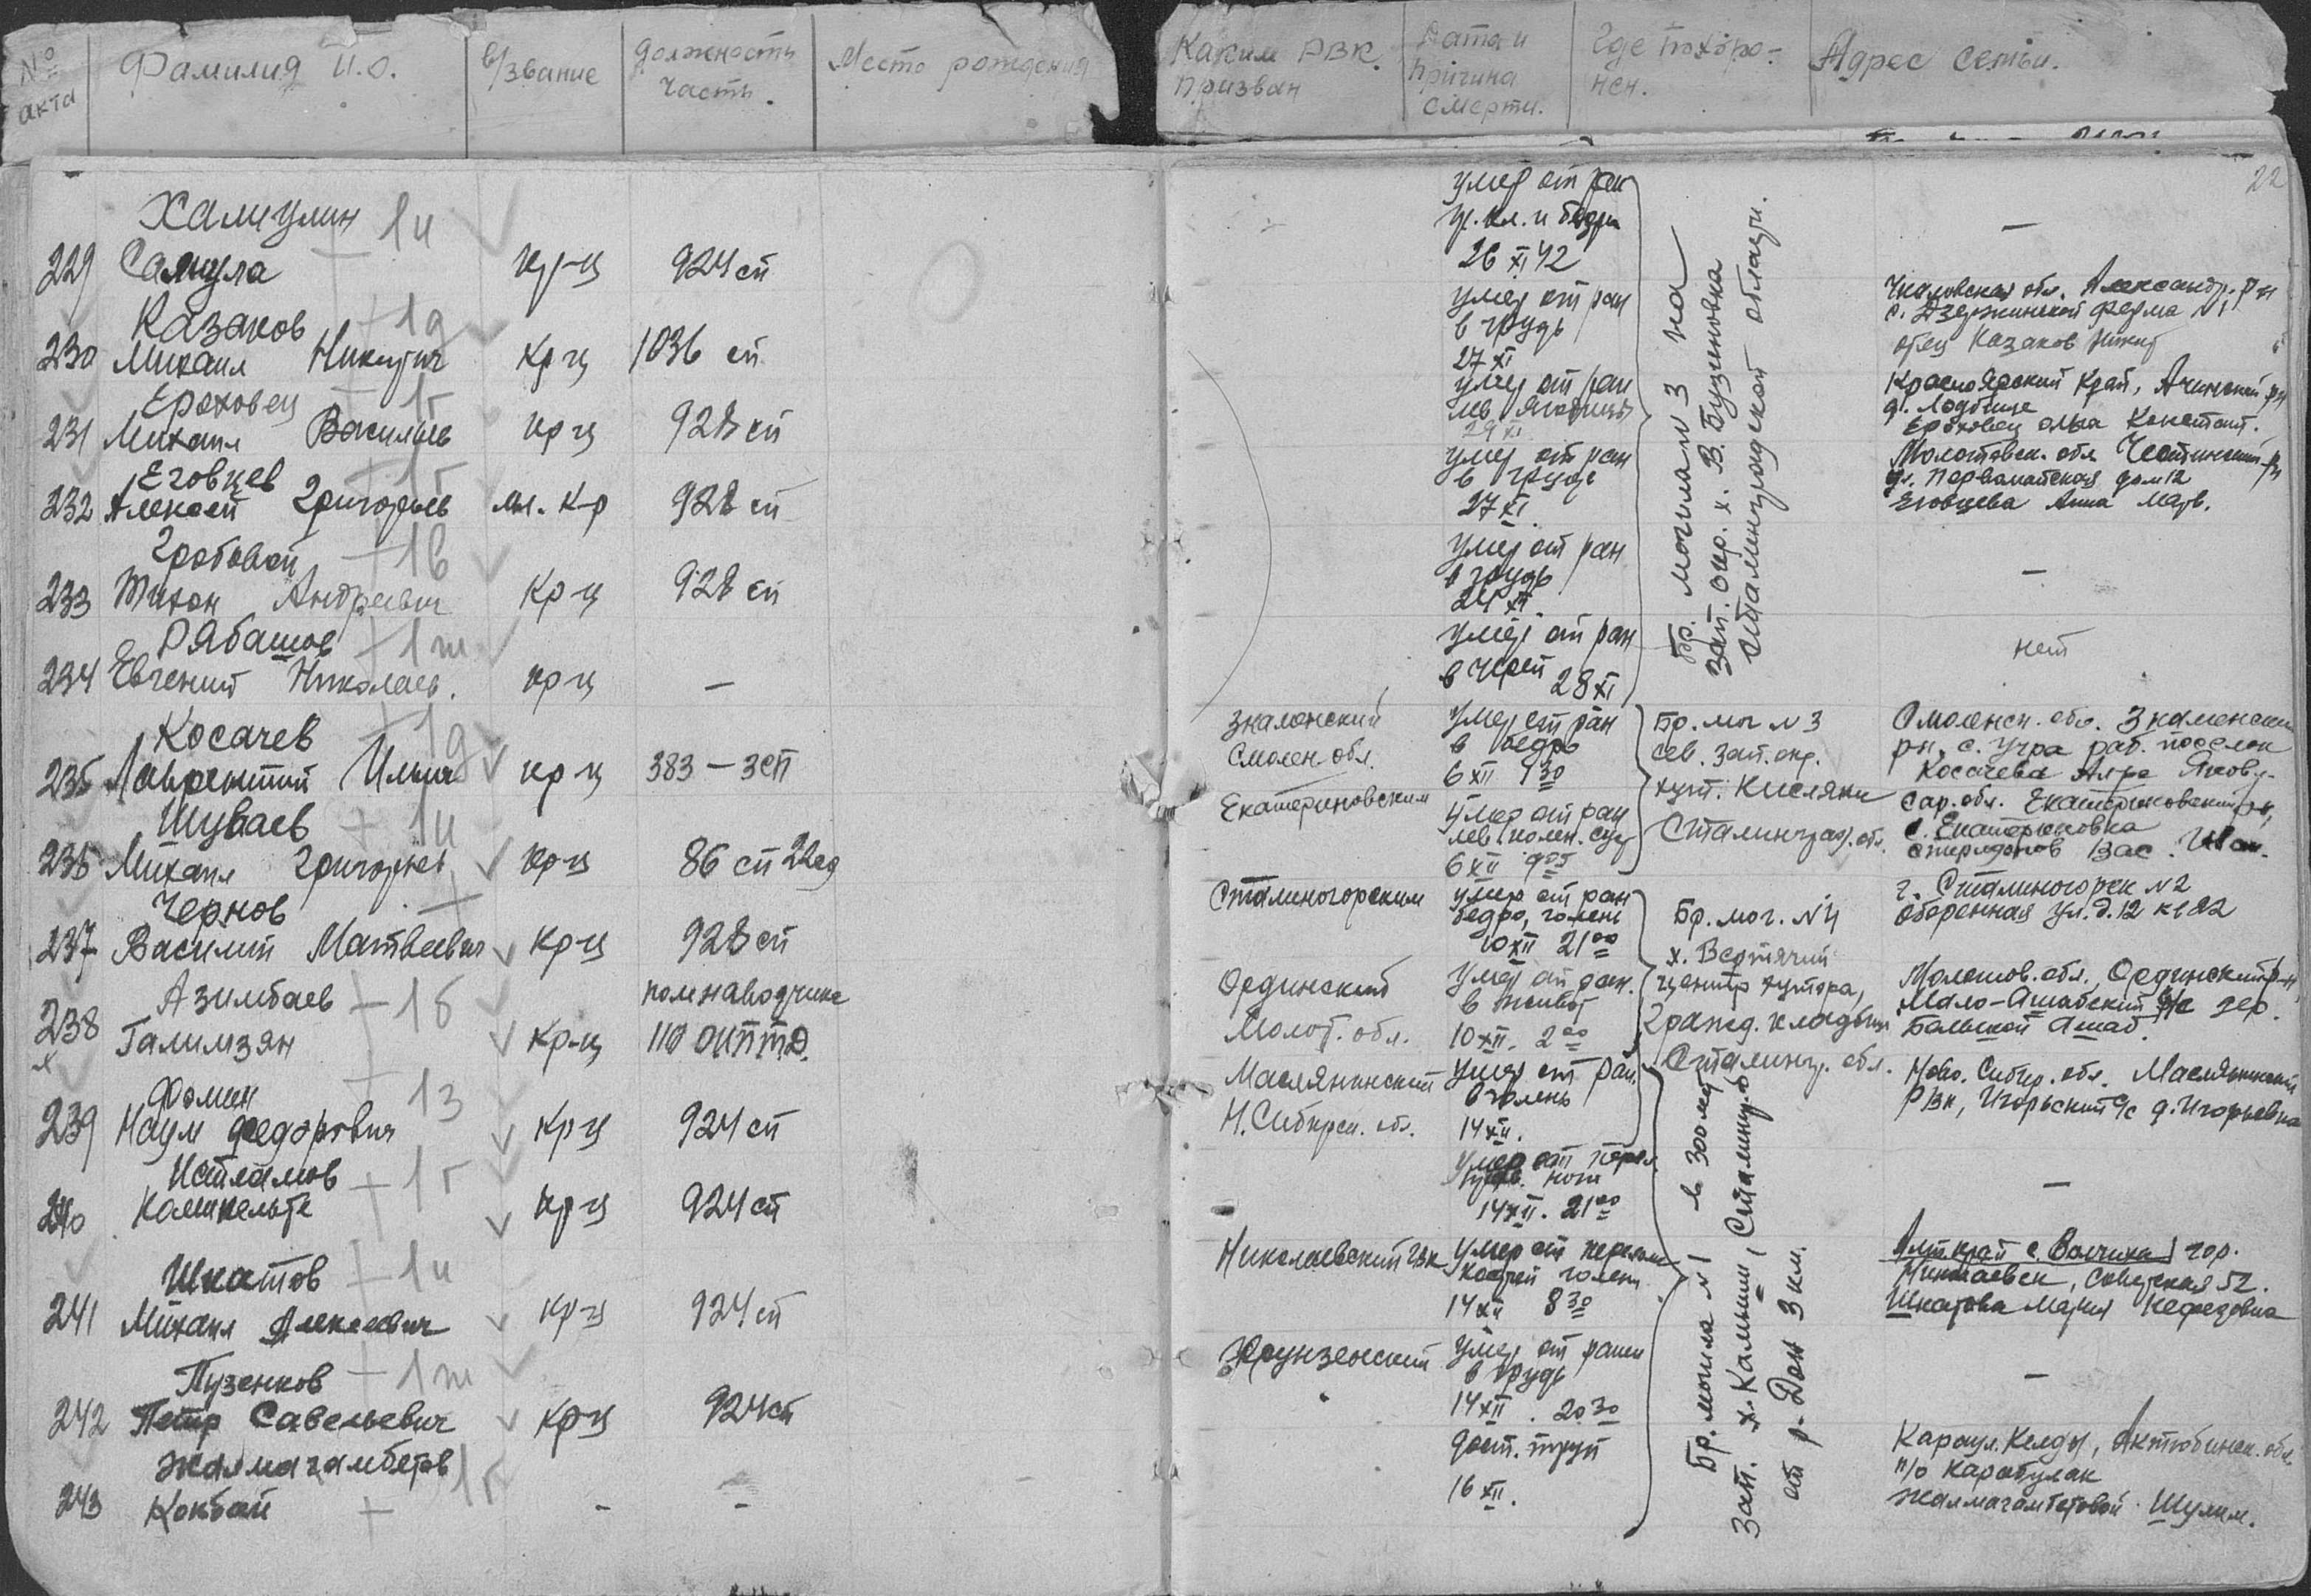 № акта
Фамилия И.О.
в/звание
Должность часть.
Место рождения
Каким РВК призван
Дата и причина смерти.
Где похоронен.
Адрес семьи.
22
Хамиулин 1и
229 Самула кр-ц 924 сп
умер от ран
и бедра
26 XI 42
—
Казаков 1д
230 Михаил Никитич кр-ц 1036 сп
умер от ран
в грудь
27 XI
Чкаловская обл. Александр. р-н
с. Дзержинской ферма №1
отец Казаков Никит
Ероховец 1г
231 Михаил Васильев кр-ц 928 сп
умер от ран
лев. ягодицы
29 XI
Красноярский край, Ачинский р-н
Ероховец Констант.
Еговцев 1г
232 Алексей Григорьев мл. к-р 928 сп
умер от ран
в груде
27 XI.
Молотовск. обл.
ул. Первомайская дом 12
Еговцева Анна
Гробовой 1в
233 Тихон Андреевич кр-ц 928 сп
умер от ран
в грудь
24 XI.
—
Рябашов 1ш
234 Евгений Николаев. кр-ц —
умер от ран
в череп 28 XI
нет
Бр. могила № 3 на
зап. окр. х. В. Бузиновка
Сталинградской области.
Косачев 1д
235 Лаврентий Ильич кр-ц 383 – зсп
Знаменский
Смолен. обл.
умер от ран
в бедро
6 XII 1 30
Бр. мог № 3
сев. зап. окр.
хут. Кисляки
Сталинград. обл.
Смоленск. обл. Знаменский
рн. с. Угра раб. поселок
Косачева Яковл.
Шуваев 1и
236 Михаил Григорьев кр-ц 86 сп 22 сд
Екатериновским
умер от ран
лев. колен. суст
6 XII 9 05
Сар. обл. Екатериновский р-н,
с. Екатериновка
Вас. Иван.
Чернов
237 Василий Матвеевич кр-ц 928 сп
Сталиногорским
умер от ран
бедро, голень
10 XII 21 00
Бр. мог. № 4
х. Вертячий
центр хутора,
гражд. кладбище
Сталингр. обл.
г. Сталиногорск № 2
ул. д. 12 кв 82
Азимбаев 1б
238 Галимзян кр-ц
пом наводчика
110 оиптд.
Ординский
Молот. обл.
умер от ран.
в живот
10 XII. 2 00
Молотов. обл., Ординский р-н,
Мало-Ашабский с/с дер.
Большой Ашаб
Фомин 13
239 Наум Федорович кр-ц 924 сп
Маслянинский
Н. Сибирск. обл.
умер от ран.
в голень
14 XII.
Ново. Сибир. обл. Маслянинский
РВК, Игорьский с/с д. Игорьевка
Исламов 1г
240 кр-ц 924 сп
14 XII. 21 00
—
Шкатов 1и
241 Михаил Алексеевич кр-ц 924 сп
Николаевский ГВК
умер от перелома
костей голени
14 XII 8 30
Алт. край с. Волчиха гор.
Николаевск, Советская 52.
Шкатова Мария
Пузенков 1ш
242 Петр Савельевич кр-ц 924 сп
Фрунзенский
умер от раны
в грудь
14 XII. 20 30
—
Жалмагамбетов 1г
243 Кокбай - -
дост. труп
16 XII.
Караул. Келды, Актюбинск. обл.
п/о Карабулак
Жалмагамбетовой Шулим.
Бр. могила № 1 в 300 мет
зап. х. Камыши, Сталингр. о
от р. Дон 3 км.